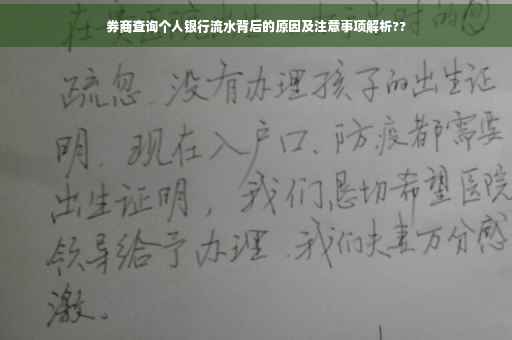 券商查询个人银行流水背后的原因及注意事项解析??
疏忽、没有办理孩子的出生证
明、现在入户口、防疫都需要
出生证明，我们恳切希望医院
领导给予办理、我们夫妻万分感
激。